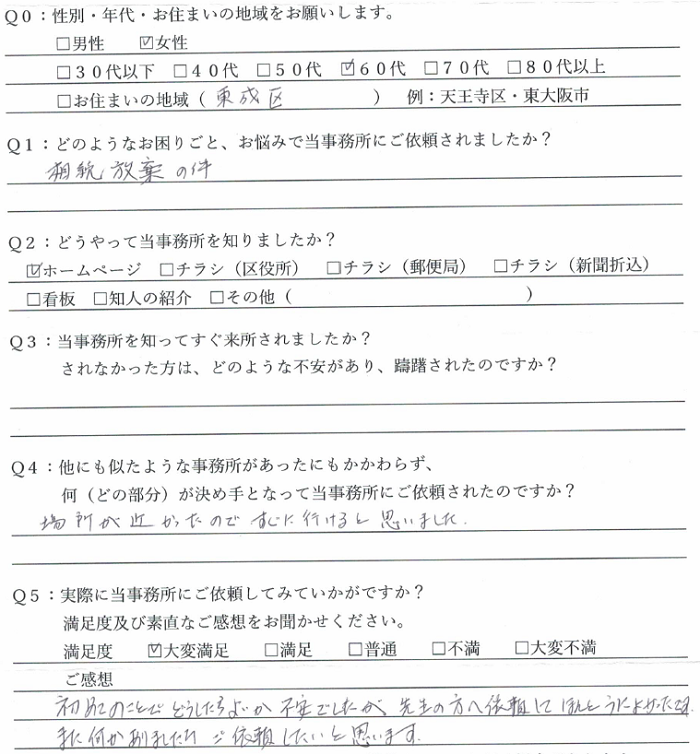 Q0：性別・年代・お住まいの地域をお願いします。
□男性　☑女性
□30代以下　□40代　□50代　☑60代　□70代　□80代以上
□お住まいの地域（ 東成区 ）　例：天王寺区・東大阪市
Q1：どのようなお困りごと、お悩みで当事務所にご依頼されましたか？
相続放棄の件
Q2：どうやって当事務所を知りましたか？
☑ホームページ　□チラシ（区役所）　□チラシ（郵便局）　□チラシ（新聞折込）
□看板　□知人の紹介　□その他（　　　　）
Q3：当事務所を知ってすぐ来所されましたか？
されなかった方は、どのような不安があり、躊躇されたのですか？
Q4：他にも似たような事務所があったにもかかわらず、
何（どの部分）が決め手となって当事務所にご依頼されたのですか？
場所が近かったので すぐに行けると思いました.
Q5：実際に当事務所にご依頼してみていかがですか？
満足度及び素直なご感想をお聞かせください。
満足度　☑大変満足　□満足　□普通　□不満　□大変不満
ご感想
初めてのことで どうしたらよいか 不安でしたが、先生の方へ依頼して ほんとうによかったです.
また何かありましたら ご依頼したいと思います.